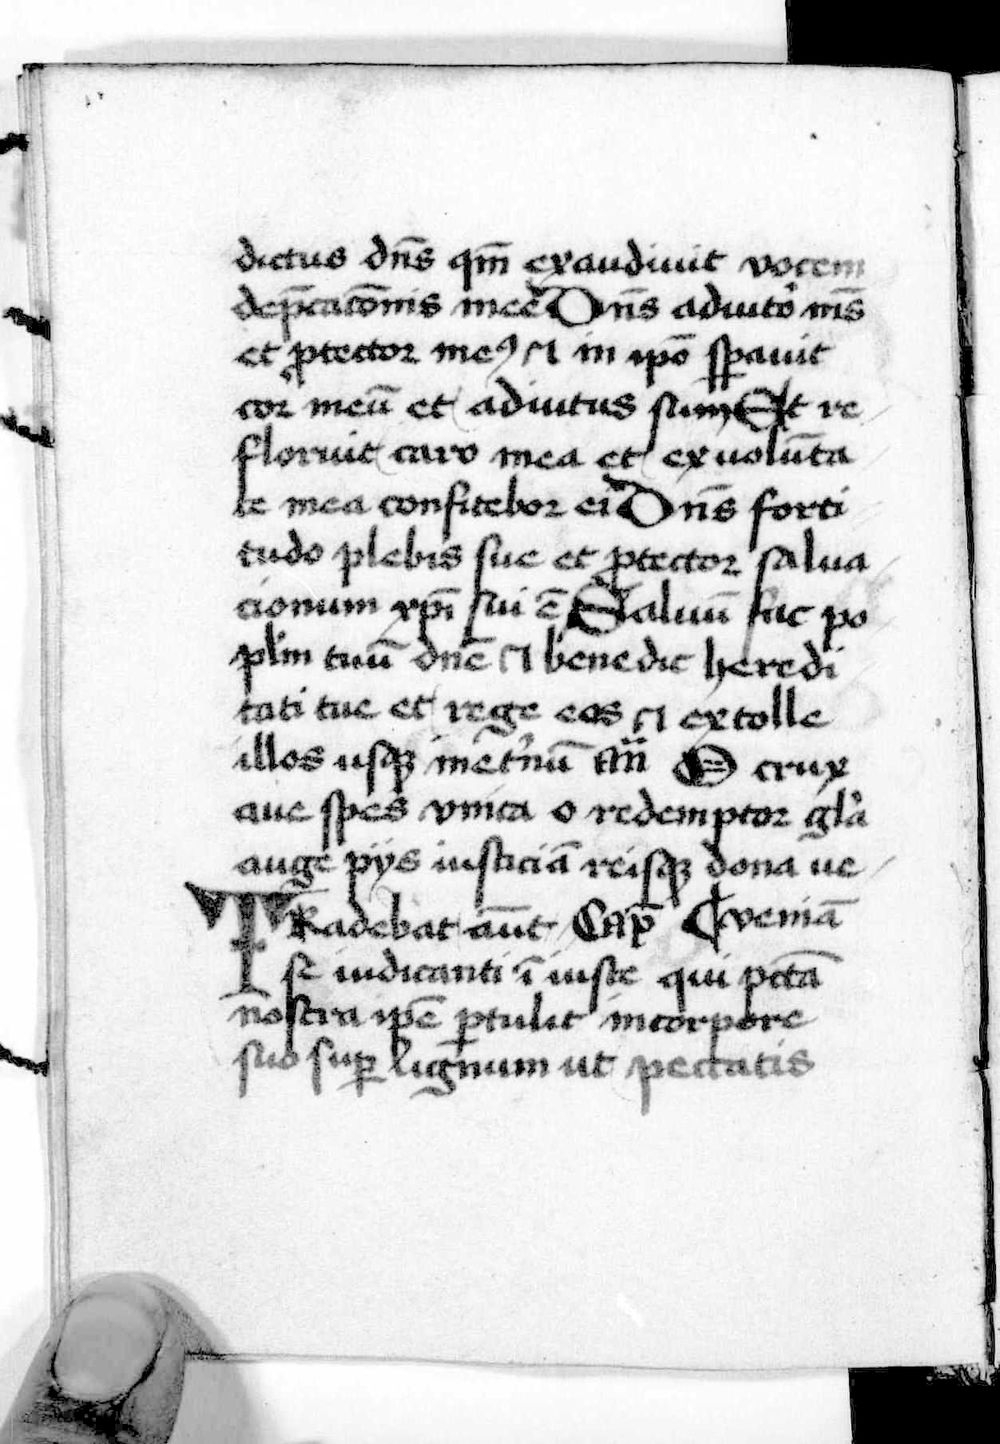 dictus dn̄s qm̄ exaudiuit vocem
dep̄catōnis mee Dn̄s adiutoʼ m̄s
et ꝓtector meꝰ ⁊ in ipō sꝑauit
cor meū et adiutus sum Et re
floruit caro mea et ex uolūta
te mea confitebor ei Dn̄s forti
tudo plebis sue et ꝓtector salua
cionum xp̄i sui ē Saluū fac po
pl̓m tuū dn̄e ⁊ benedic heredi
tati tue et rege eos ⁊ extolle
illos usqꝫ in et̓nū añ O crux
aue spes vnica o redemptor gl̓a
auge pijs iusticiā reisqꝫ dona ue
TRadebat aūt Cap̄ veniā
se iudicanti ī iuste qui pctā
n̄ostra ip̄e ꝑtulit in corpore
suo suꝑ lignum ut peccatis